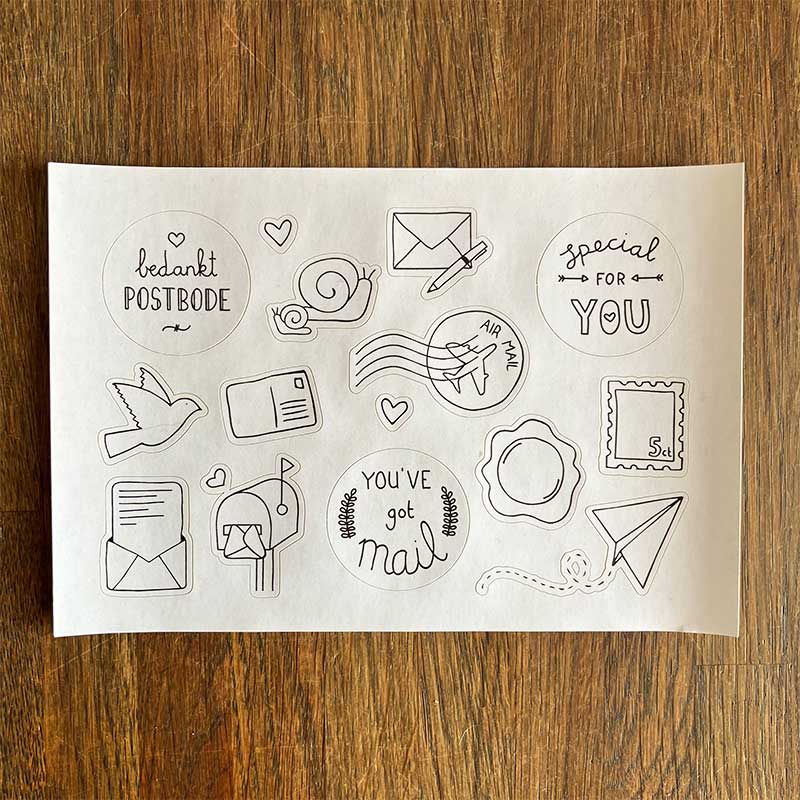 bedankt
POSTBODE
special
FOR
YOU
AIR MAIL
5ct
YOU'VE
got
mail